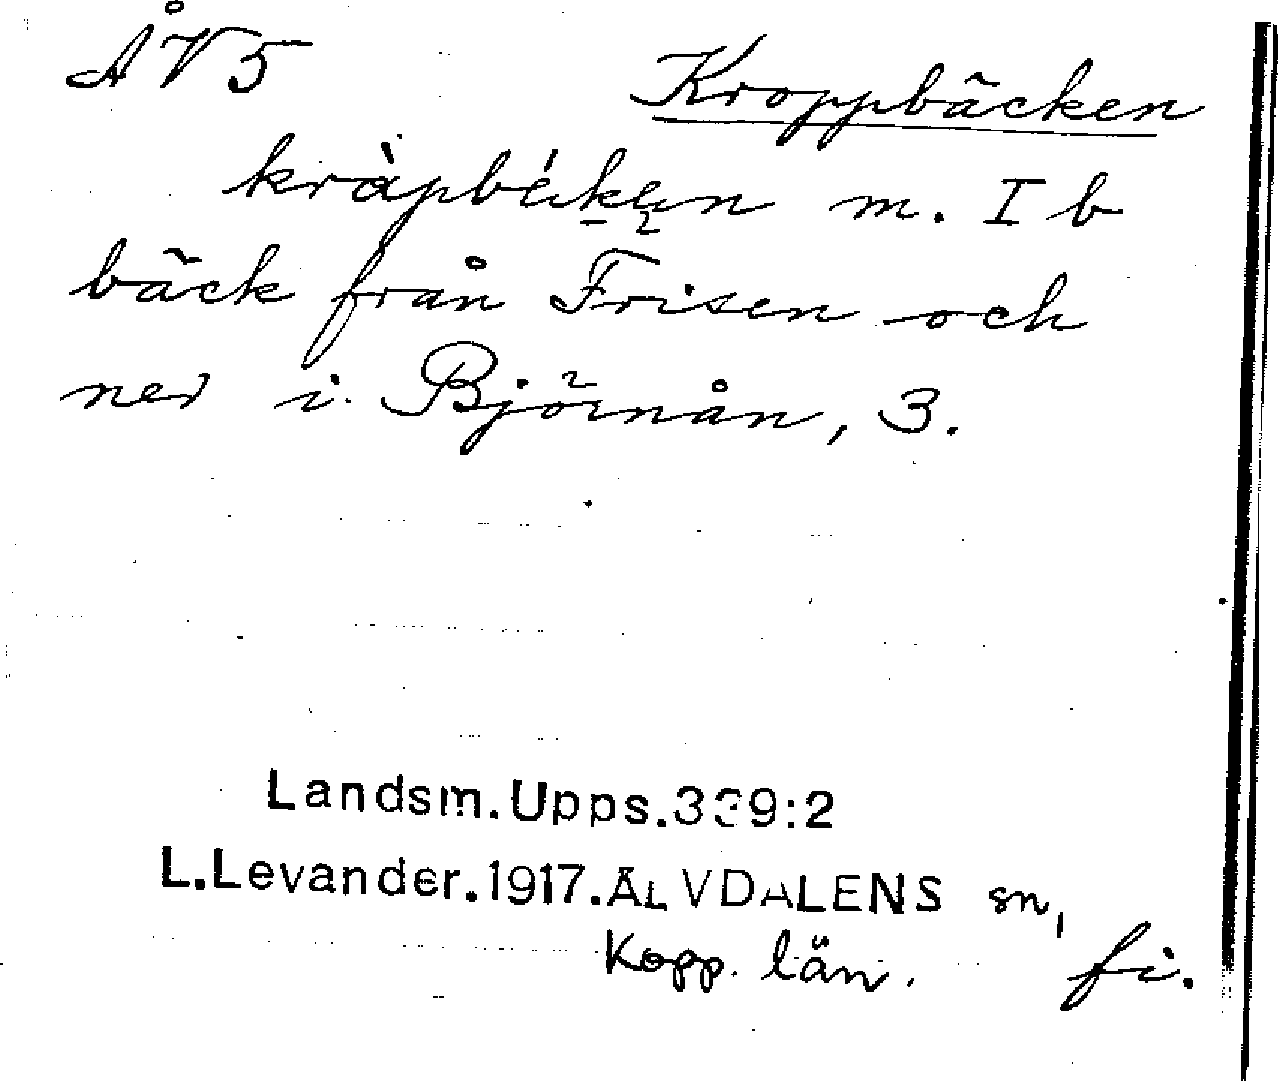 ÅV5 Kroppbäcken
kràpbé̀ken m. I b
bäck från Frisen och
ner i Björnån, 3.
Landsm.Upps.339:2
L.Levander.1917.ÄLVDALENS sn,
Kopp. län. fi.